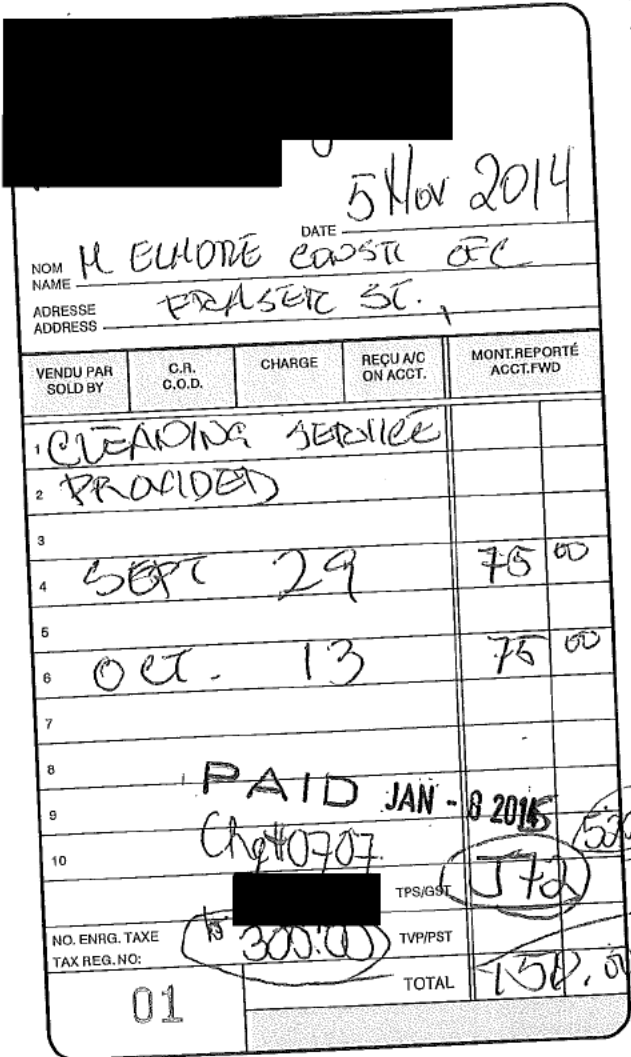 5 Nov 2014
DATE
NOM
NAME
M ELMORE CONSTI OFC
ADRESSE
ADDRESS
FRASER ST.,
VENDU PAR
SOLD BY
C.R.
C.O.D.
CHARGE
REÇU A/C
ON ACCT.
MONT.REPORTÉ
ACCT.FWD
1 CLEANING SERVICE
2 PROVIDED
3
4 SEPT 29 75 00
5
6 OCT. 13 75 00
7
8
PAID JAN - 6 2015
9
10 Chq#0707
TPS/GST
NO. ENRG. TAXE
TAX REG. NO:
$ 300.00 TVP/PST
TOTAL 150.00
01